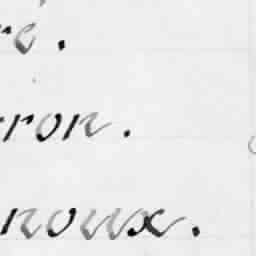 ré.
rron.
noux.